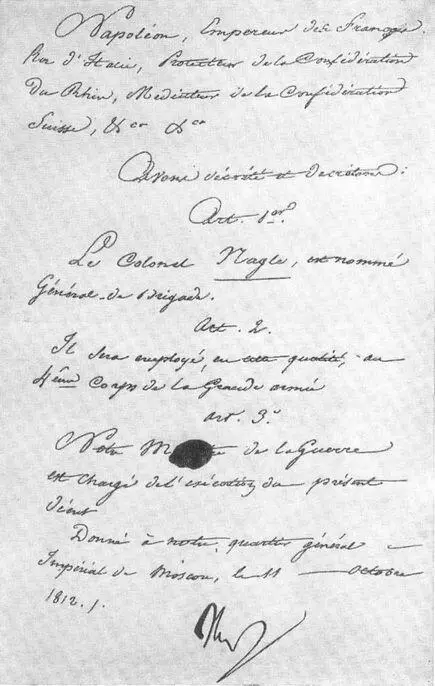 Napoléon, Empereur des Français.
Roi d'Italie, Protecteur de la Confédération
Du Rhin, Mediateur de la Confédération
Suisse, &ca &ca
Avons décrété et decretons:
Art. 1er
Le Colonel Nagle, est nommé
Général de Brigade.
Art. 2.
Il sera employé, en cette qualité, au
4ème Corps de la Grande armée
art. 3.
Notre M re de la Guerre
est chargé de l'exécution du présent
décret
Donné à notre quartier général
Impérial de Moscou, le 11 Octobre
1812.